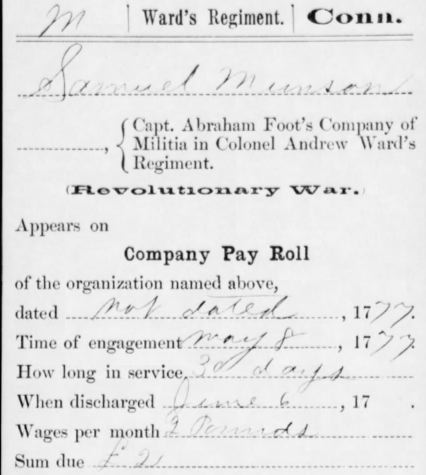 M Ward's Regiment. Conn.
Samuel Munson
Capt. Abraham Foot's Company of
, Militia in Colonel Andrew Ward's
Regiment.
(Revolutionary War.)
Appears on
Company Pay Roll
of the organization named above,
dated not dated, 1777.
Time of engagement May 8, 1777.
How long in service, 30 days
When discharged June 6, 17 .
Wages per month 2 Pounds
Sum due £2